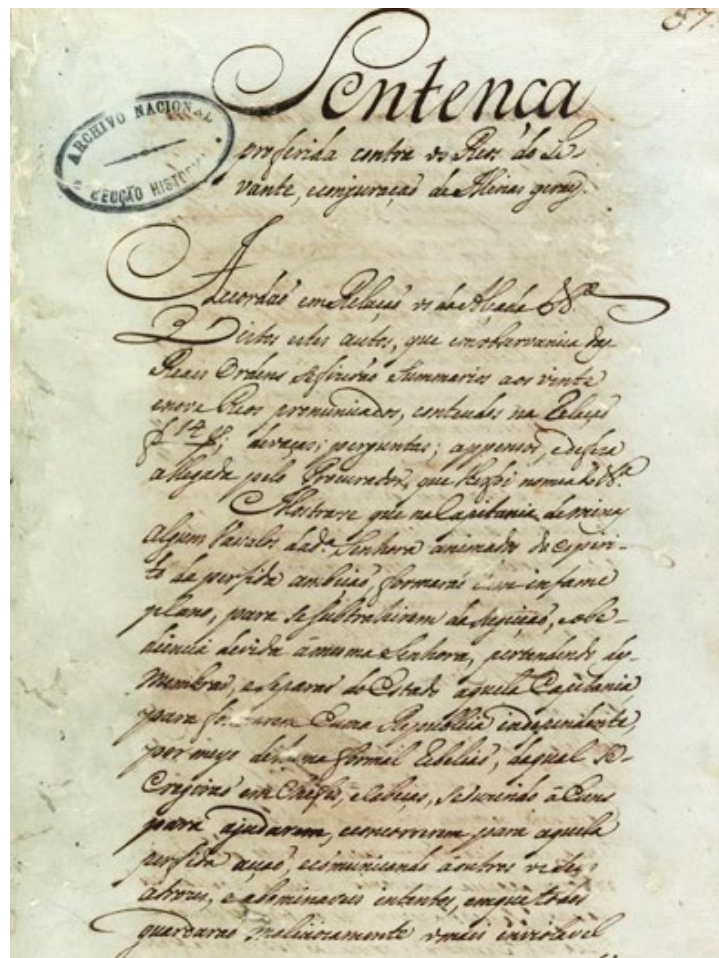 87.
Sentença
ARCHIVO NACIONAL
SECÇÃO HISTORICA
proferida contra os Reos do Le-
vante, e conjuração de Minas geraes.
Accordaõ em Relaçaõ os da Alçada &ª
Vistos estes autos, que em observancia das
Reaes Ordens se fizeraõ Summarios aos vinte
e nove Reos pronunciados, conteudos na Relaçaõ
f 14 devaças; perguntas; appensos, e defeza
allegada pelo Procurador, que lhe foi nomeado &ª
Mostrase que na Capitania de Minas
alguns Vasalos da dª Senhora animados do espiri-
to da perfida ambiçaõ, formaraõ hum infame
plano, para se subtrahirem da sugeiçaõ, e obe-
diencia devida á mesma Senhora, pertendendo des-
membrar, e separar do Estado aquela Capitania
para formarem huma Republica independente,
por meyo de huma formal Rebeliaõ, da qual se
Erigiraõ em Chefes, e Cabeças, seduzindo á huns
para ajudarem, e concorrerem para aquela
perfida açaõ, e comunicando á outros os seus
atrozes, e abominaveis intentos, em que todos
guardaraõ maliciosamente o mais inviolavel